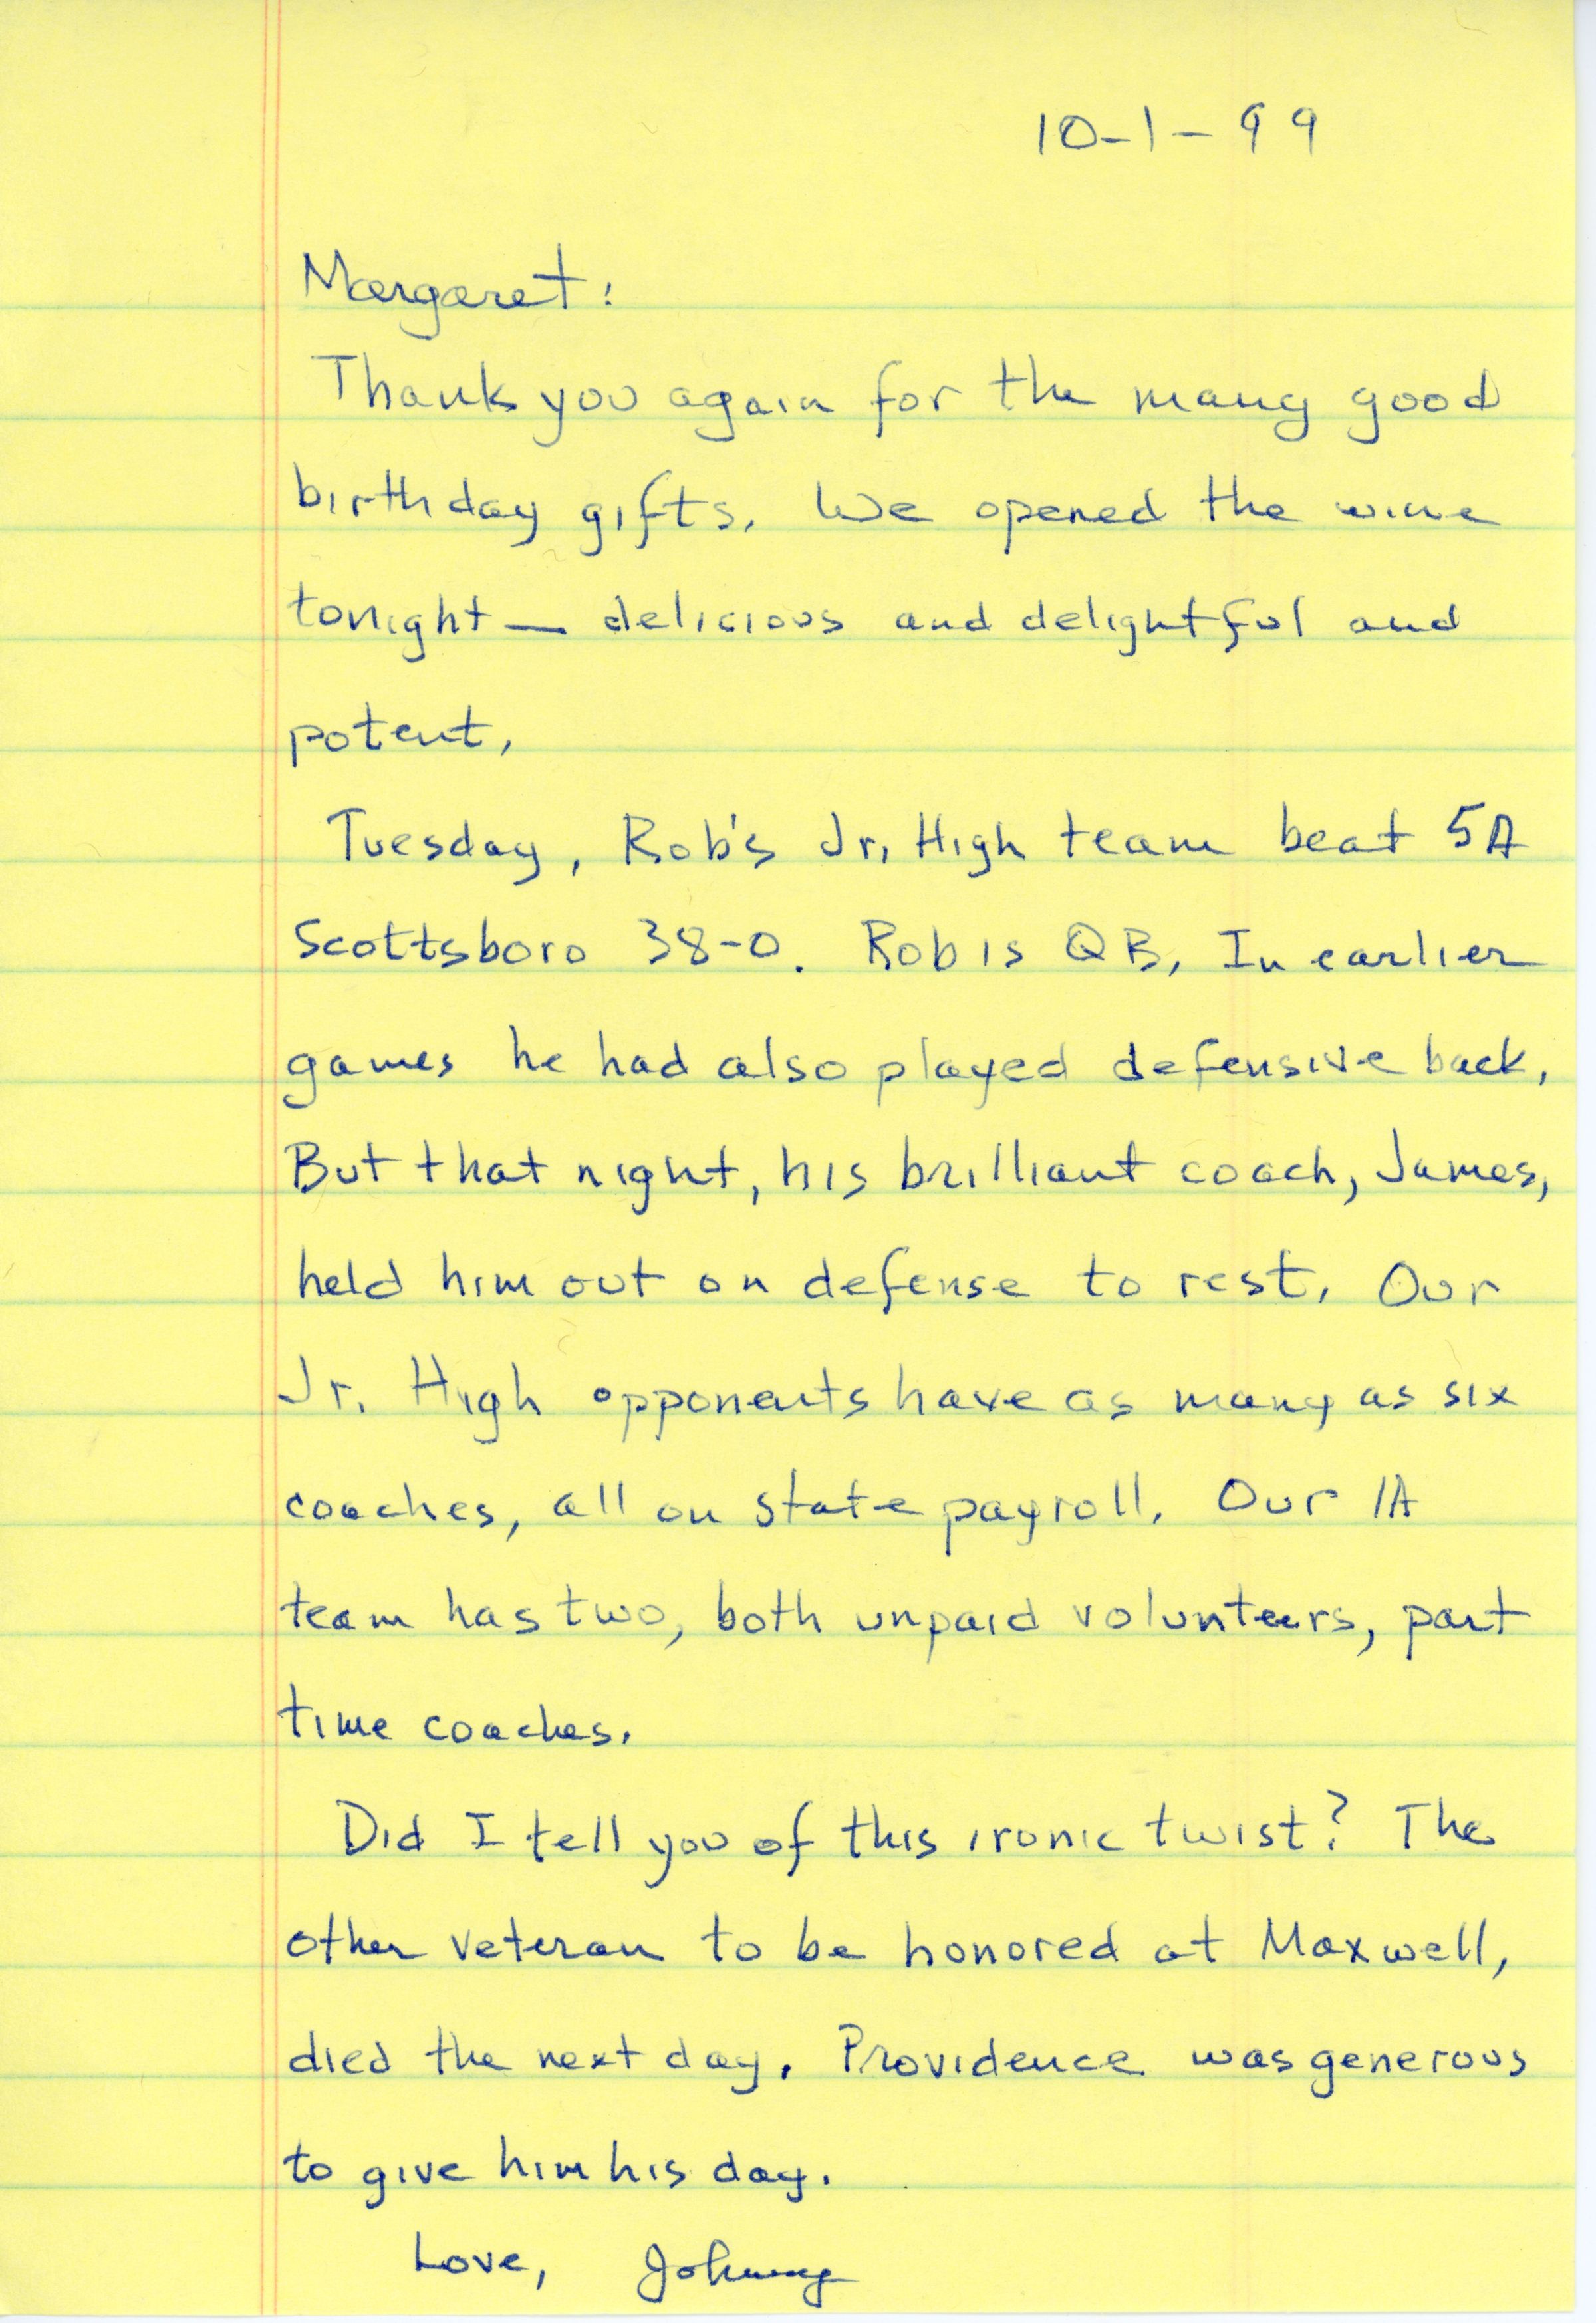 10-1-99
Margaret:
Thank you again for the many good
birthday gifts. We opened the wine
tonight — delicious and delightful and
potent.
Tuesday, Rob's Jr. High team beat 5A
Scottsboro 38-0. Rob is QB. In earlier
games he had also played defensive back.
But that night, his brilliant coach, James,
held him out on defense to rest. Our
Jr. High opponents have as many as six
coaches, all on state payroll. Our 1A
team has two, both unpaid volunteers, part
time coaches.
Did I tell you of this ironic twist? The
other veteran to be honored at Maxwell,
died the next day. Providence was generous
to give him his day.
Love, Johnny